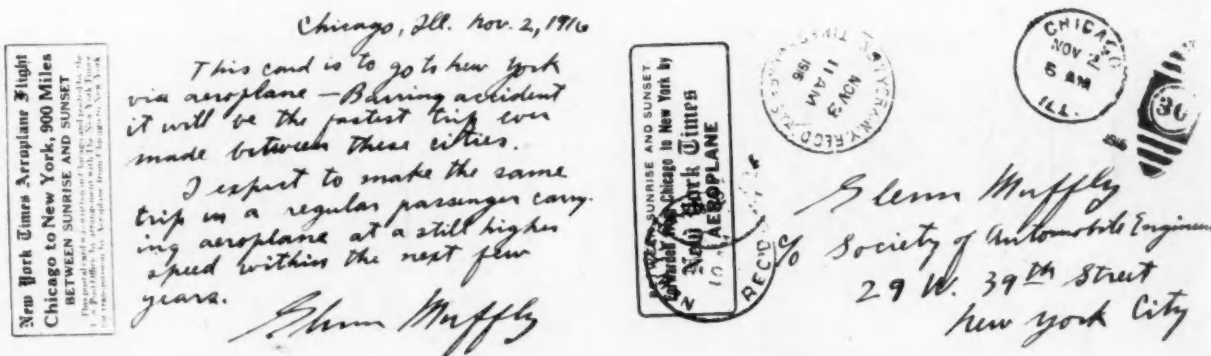 New York Times Aeroplane Flight
Chicago to New York, 900 Miles
BETWEEN SUNRISE AND SUNSET
Chicago, Ill. Nov. 2, 1916
This card is to go to New York
via aeroplane — Barring accident
it will be the fastest trip ever
made between these cities.
I expect to make the same
trip in a regular passenger carry-
ing aeroplane at a still higher
speed within the next few
years.
Glenn Muffly
BETWEEN SUNRISE AND SUNSET.
Chicago to New York by
New York Times
AEROPLANE
REC'D
NOV 3
11 AM
1916
CHICAGO
NOV 2
5 AM
ILL.
1916
Glenn Muffly
c/o Society of Automobile Engineers
29 W. 39th Street
New York City